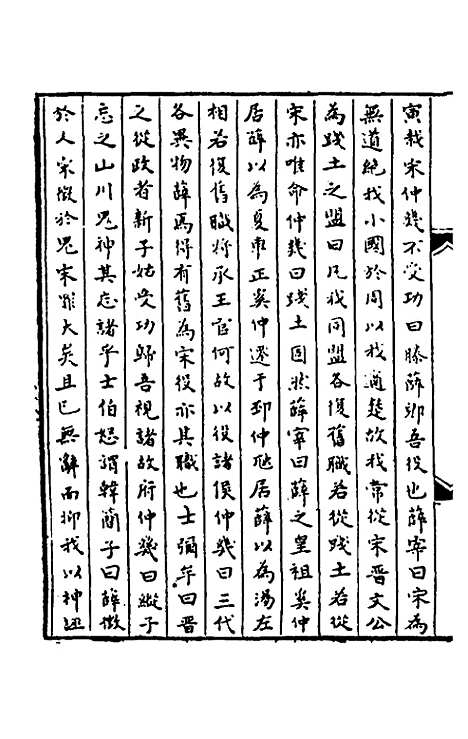 寅栽宋仲幾不受功曰滕薛郳吾役也薛宰曰宋為
無道絕我小國於周以我適楚故我常從宋晉文公
為踐土之盟曰凡我同盟各復舊職若從踐土若從
宋亦唯命仲幾曰踐土固然薛宰曰薛之皇祖奚仲
居薛以為夏車正奚仲遷于邳仲虺居薛以為湯左
相若復舊職將承王官何故以役諸侯仲幾曰三代
各異物薛焉得有舊為宋役亦其職也士彌牟曰晉
之從政者新子姑受功歸吾視諸故府仲幾曰縱子
忘之山川鬼神其忘諸乎士伯怒謂韓簡子曰薛徵
於人宋徵於鬼宋罪大矣且已無辭而抑我以神誣